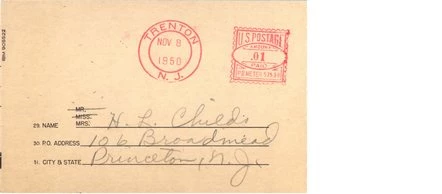 IBM 905922
TRENTON
NOV 8
1950
N. J.
U.S. POSTAGE
.01
MR.
MISS.
29. NAME MRS. H. L. Childs
30. P.O. ADDRESS 106 Broadmead
31. CITY & STATE Princeton, N. J.